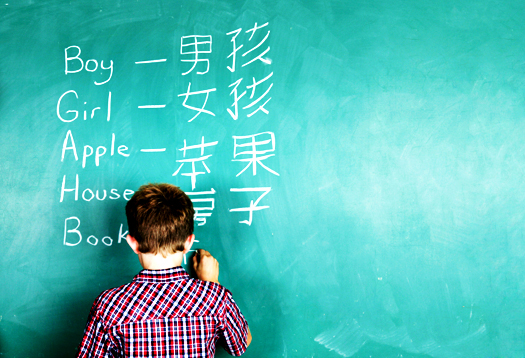 Boy — 男孩
Girl — 女孩
Apple — 苹果
House 房子
Book